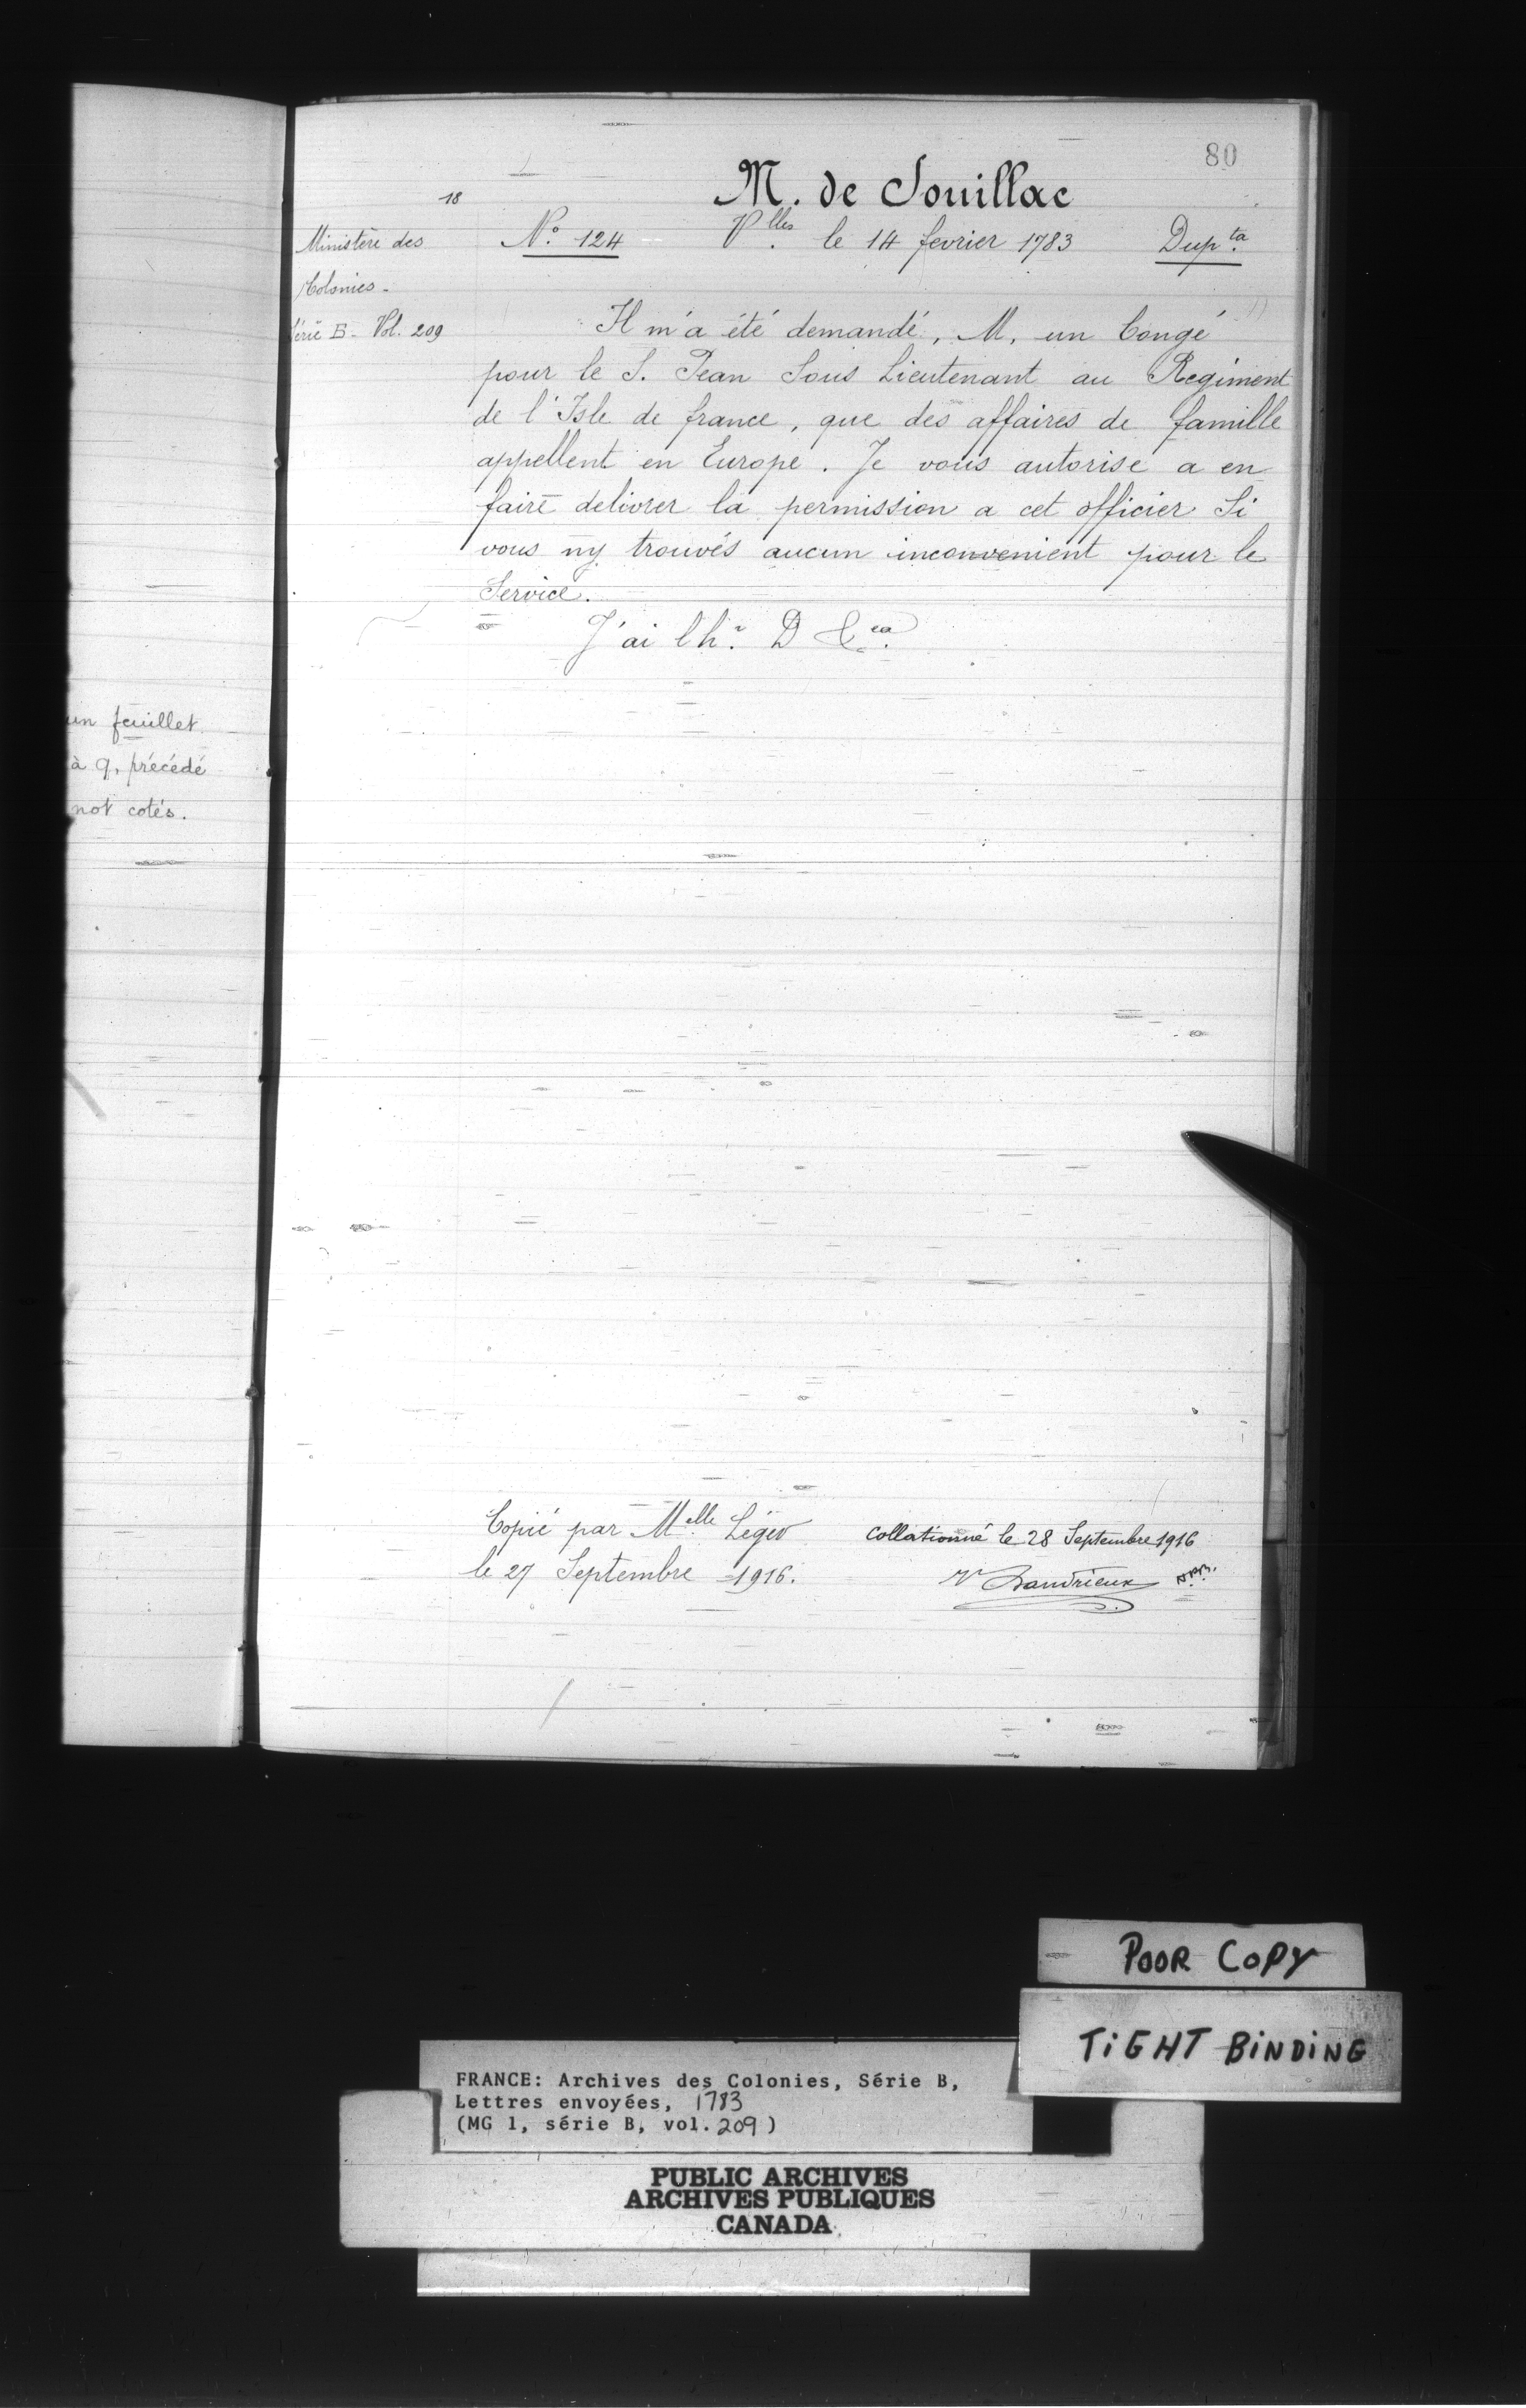 80
M. de Souillac
18
Ministère des
Colonies -
Série B - Vol. 209
Nº. 124
Vlles. le 14 fevrier 1783
Dupta.
Il m'a été demandé, M, un Congé
pour le S. Pean Sous Lieutenant au Regiment
de l'Isle de france, que des affaires de famille
appellent en Europe. Je vous autorise a en
faire delivrer la permission a cet officier Si
vous ny trouvés aucun inconvenient pour le
Service.
J'ai l hr. D &ca.
un feuillet
à 9, précédé
not cotés.
Copié par Melle. Léger
le 27 Septembre 1916.
Collationné le 28 Septembre 1916
POOR COPY
TIGHT BINDING
FRANCE: Archives des Colonies, Série B,
Lettres envoyées, 1783
(MG 1, série B, vol. 209)
PUBLIC ARCHIVES
ARCHIVES PUBLIQUES
CANADA